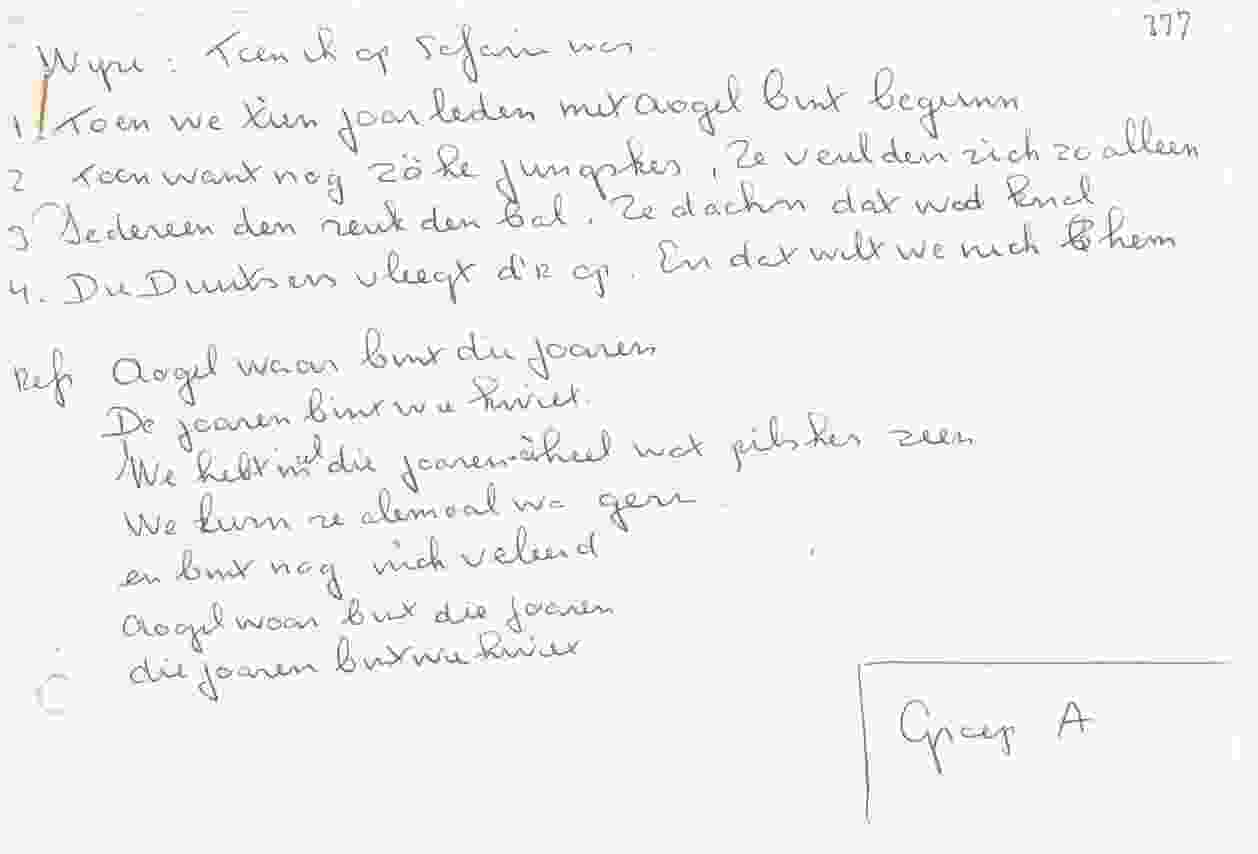 377
Wyze: Toen ik op Safari was.
1 Toen we tien joar leden met aogel bint begunn
2 Toen want nog zöke jungskes, Ze veulden zich zo alleen
3 Iedereen den zeuk den bal. Ze dachn dat wed knal
4. Die Duutsers vleegt d'r op. En dat wilt we nich hem
Ref Aogel woar bint die joaren
De joaren bint wie kwiet.
We hebt in al die joaren heel wat pilskes zeen
We kunn ze alemoal wa gern
en bint nog nich veleerd
Aogel woar bint die joaren
die joaren bint wie kwiet
Groep A